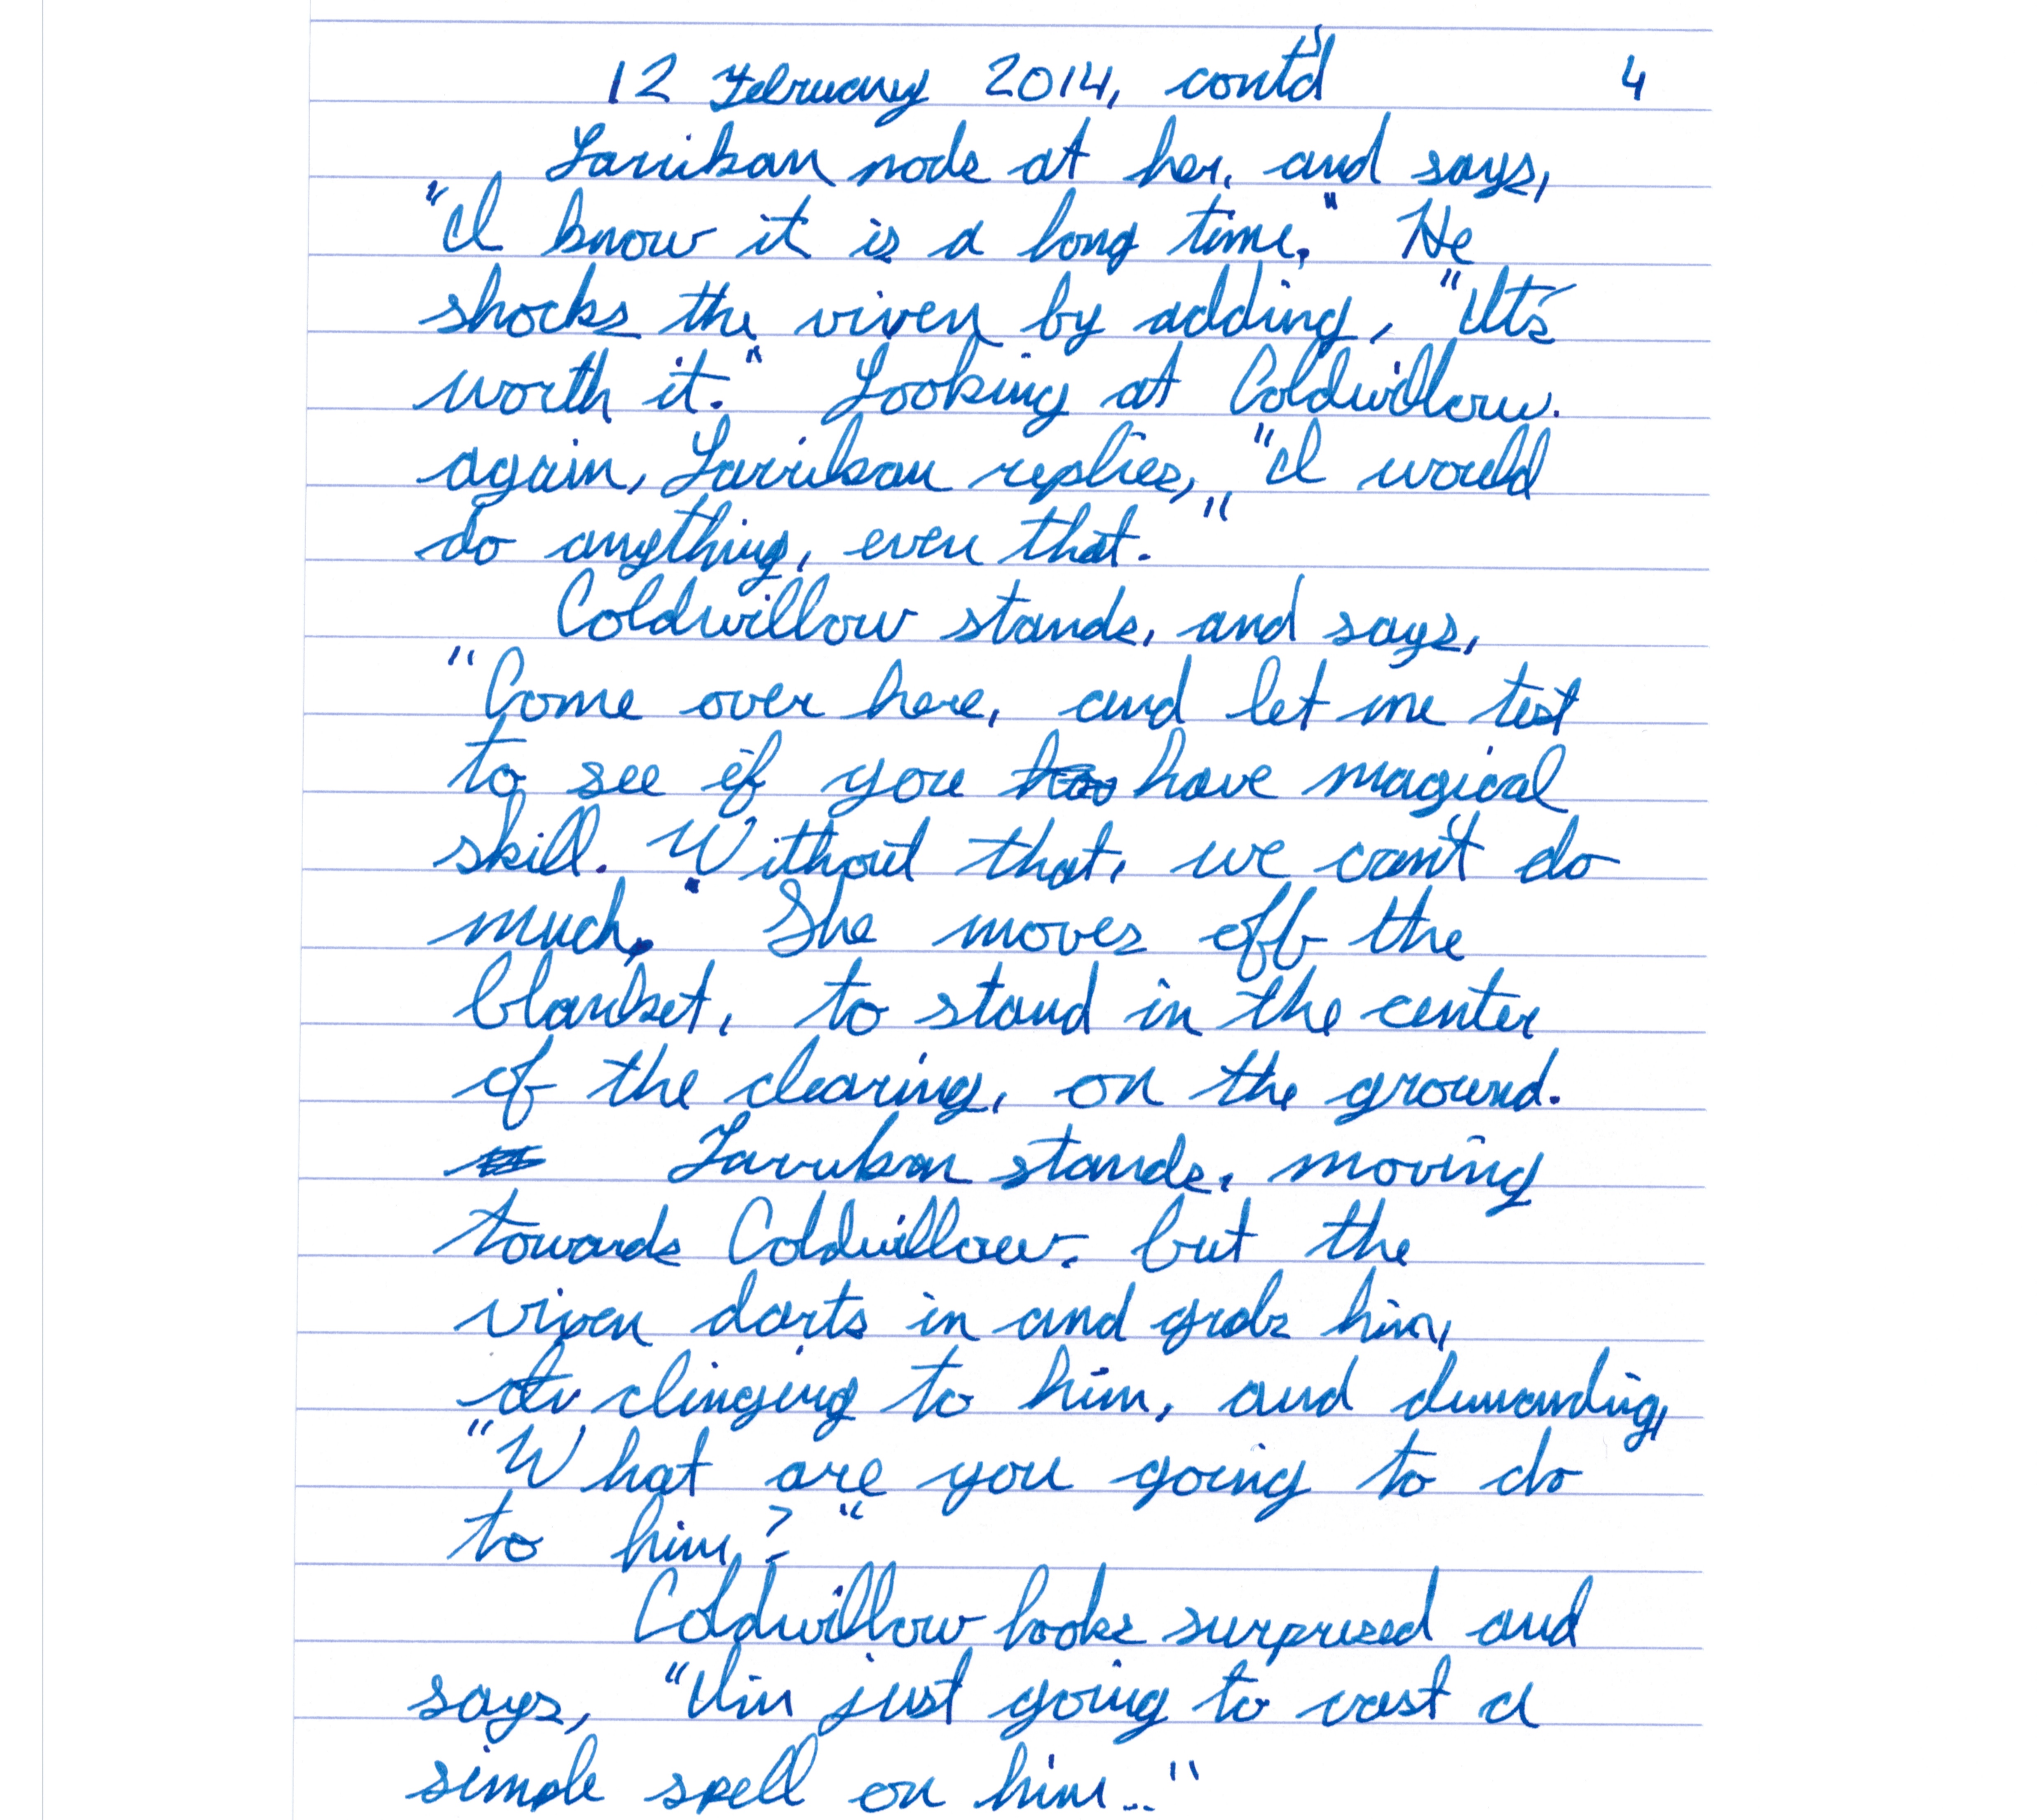 12 February 2014, cont'd 4
Larrikan nods at her, and says,
"I know it is a long time." He
shocks the viven by adding, "It's
worth it." Looking at Coldwillow.
again, Larrikan replies, "I would
do anything, even that."
Coldwillow stands, and says,
"Come over here, and let me test
to see if you have magical
skill. Without that, we can't do
much." She moves off the
blanket, to stand in the center
of the clearing, on the ground.
Larrikan stands, moving
towards Coldwillow, but the
viven darts in and grabs him,
clinging to him, and demanding,
"What are you going to do
to him?"
Coldwillow looks surprised and
says, "I'm just going to cast a
simple spell on him.."